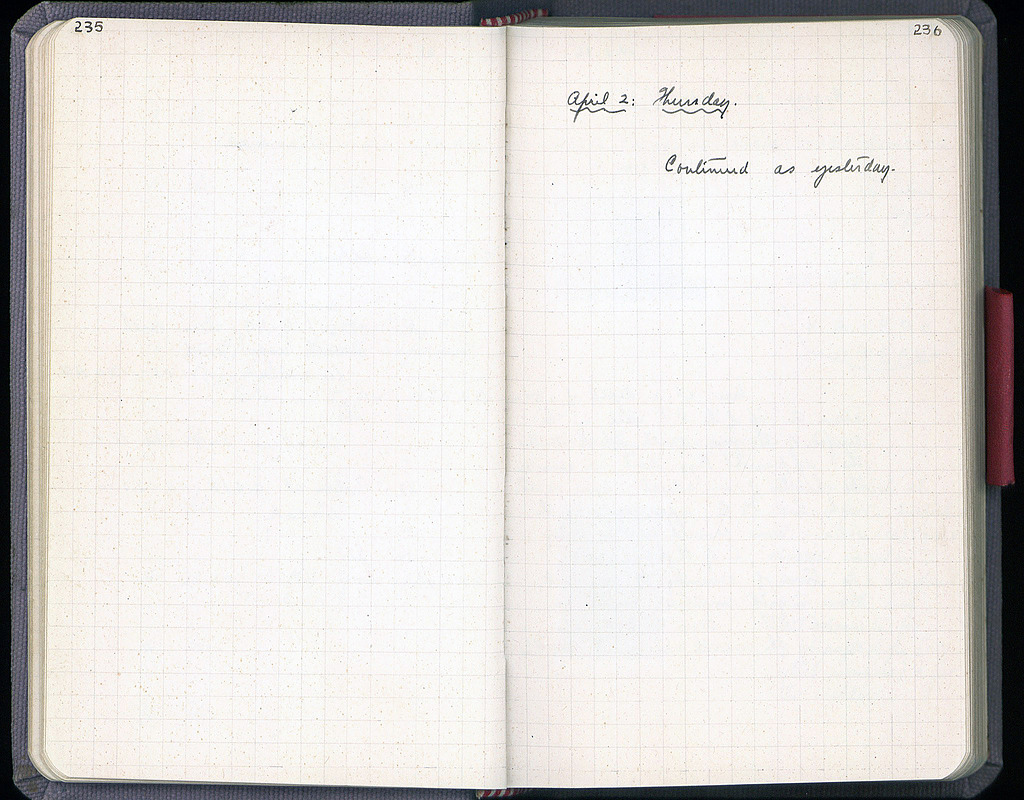 235
236
April 2: Thursday.
Continued as yesterday.